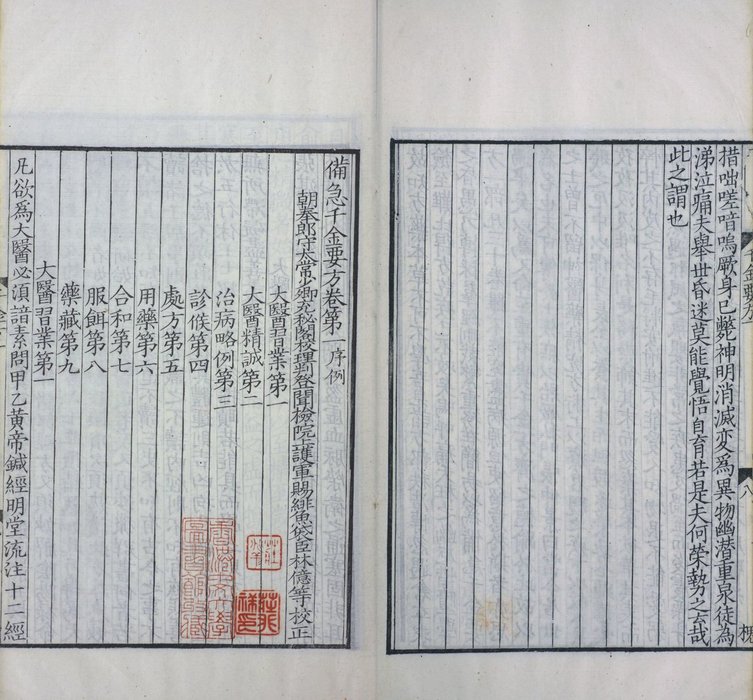 措咄嗟喑嗚厥身已斃神明消滅變為異物幽潛重泉徒為
涕泣痛夫舉世昏迷莫能覺悟自育若是夫何榮勢之云哉
此之謂也
備急千金要方卷第一 序例
朝奉郎守太常少卿充秘閣校理判登聞檢院上護軍賜緋魚袋臣林億等校正
大醫習業第一
大醫精誠第二
治病略例第三
診候第四
處方第五
用藥第六
合和第七
服餌第八
藥藏第九
大醫習業第一
凡欲為大醫必須諳素問甲乙黃帝鍼經明堂流注十二經